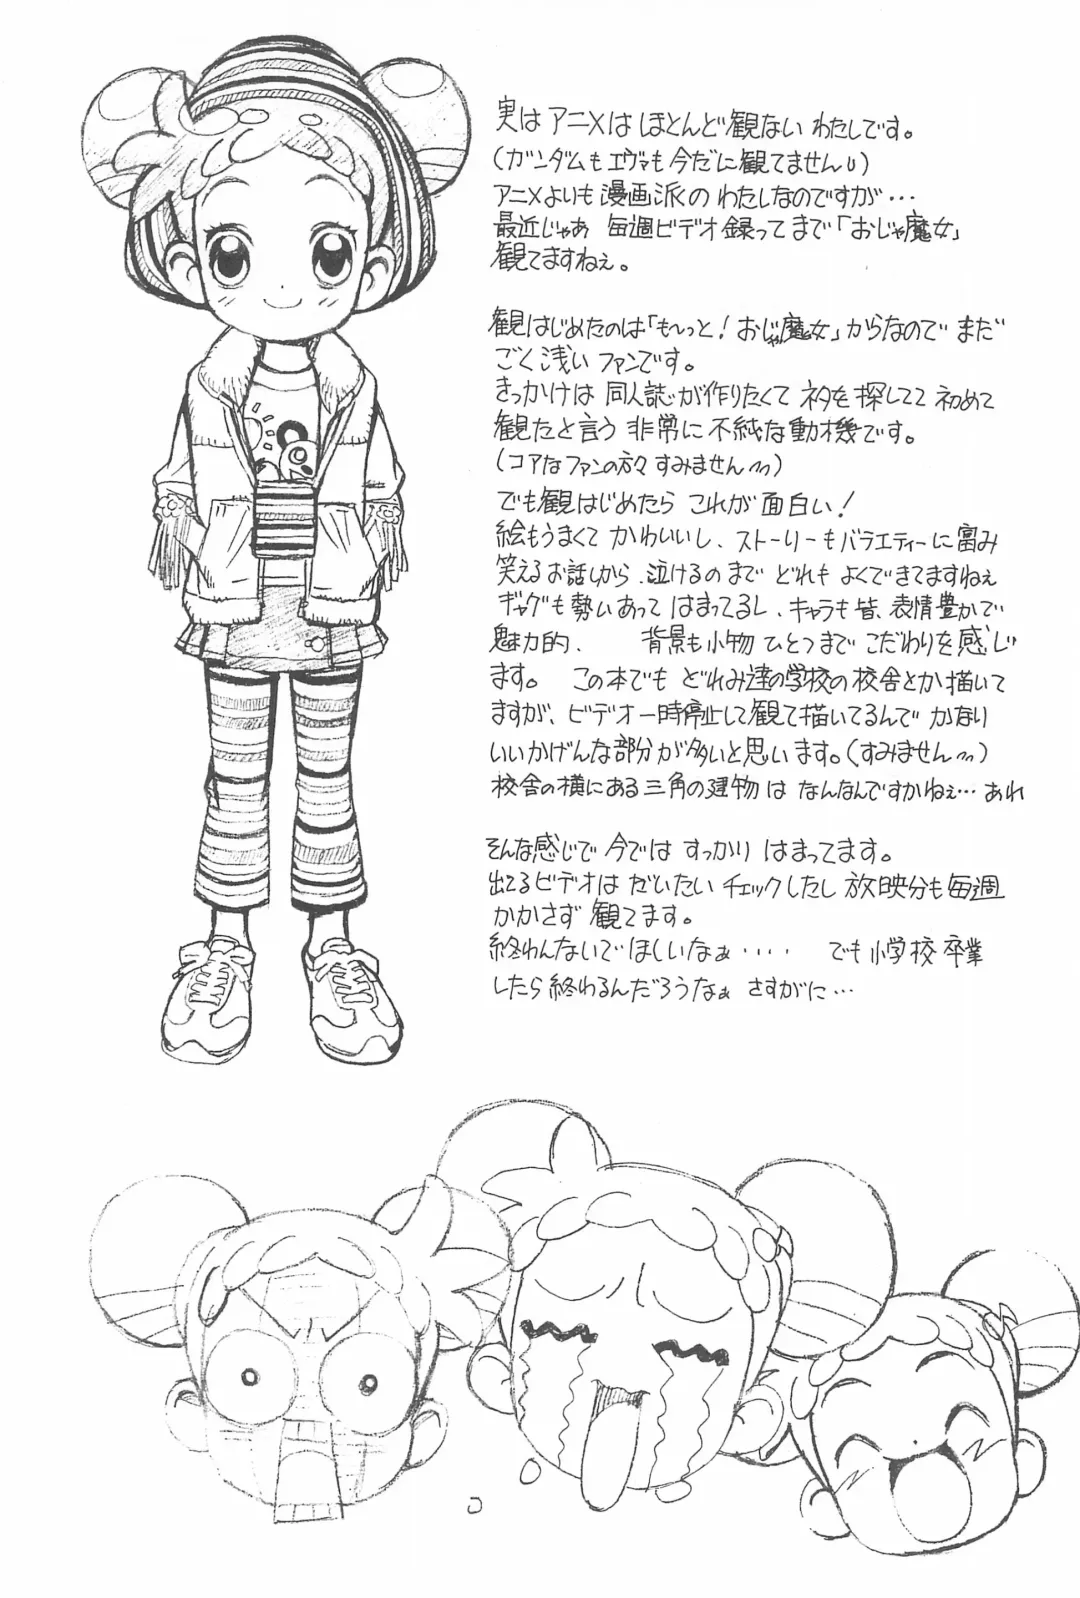 実はアニメはほとんど観ないわたしです。
(ガンダムもエヴァも今だに観てません)
アニメよりも漫画派のわたしなのですが…
最近じゃあ 毎週ビデオ録ってまで「おじゃ魔女」
観てますねぇ。
観はじめたのは「も〜っと！おじゃ魔女」からなので まだ
ごく浅い ファンです。
きっかけは 同人誌が作りたくて ネタを探してて 初めて
観たと言う 非常に不純な動機です。
(コアなファンの方々すみません)
でも観はじめたら これが面白い！
絵もうまくて かわいいし、ストーリーもバラエティーに富み
笑えるお話しから、泣けるのまで どれも よくできてますねぇ
ギャグも勢いあって はまってるし、キャラも皆、表情豊かで
魅力的、 背景も小物ひとつまで こだわりを感じ
ます。 この本でも どれみ達の学校の校舎とか描いて
ますが、ビデオ一時停止して観て描いてるんで かなり
いいかげんな部分が多いと思います。(すみません)
校舎の横にある三角の建物は なんなんですかねぇ…あれ
そんな感じで 今では すっかり はまってます。
出てるビデオは だいたい チェックしたし 放映分も毎週
かかさず 観てます。
終わんないで ほしいなぁ‥‥ でも小学校卒業
したら終わるんだろうなぁ さすがに…